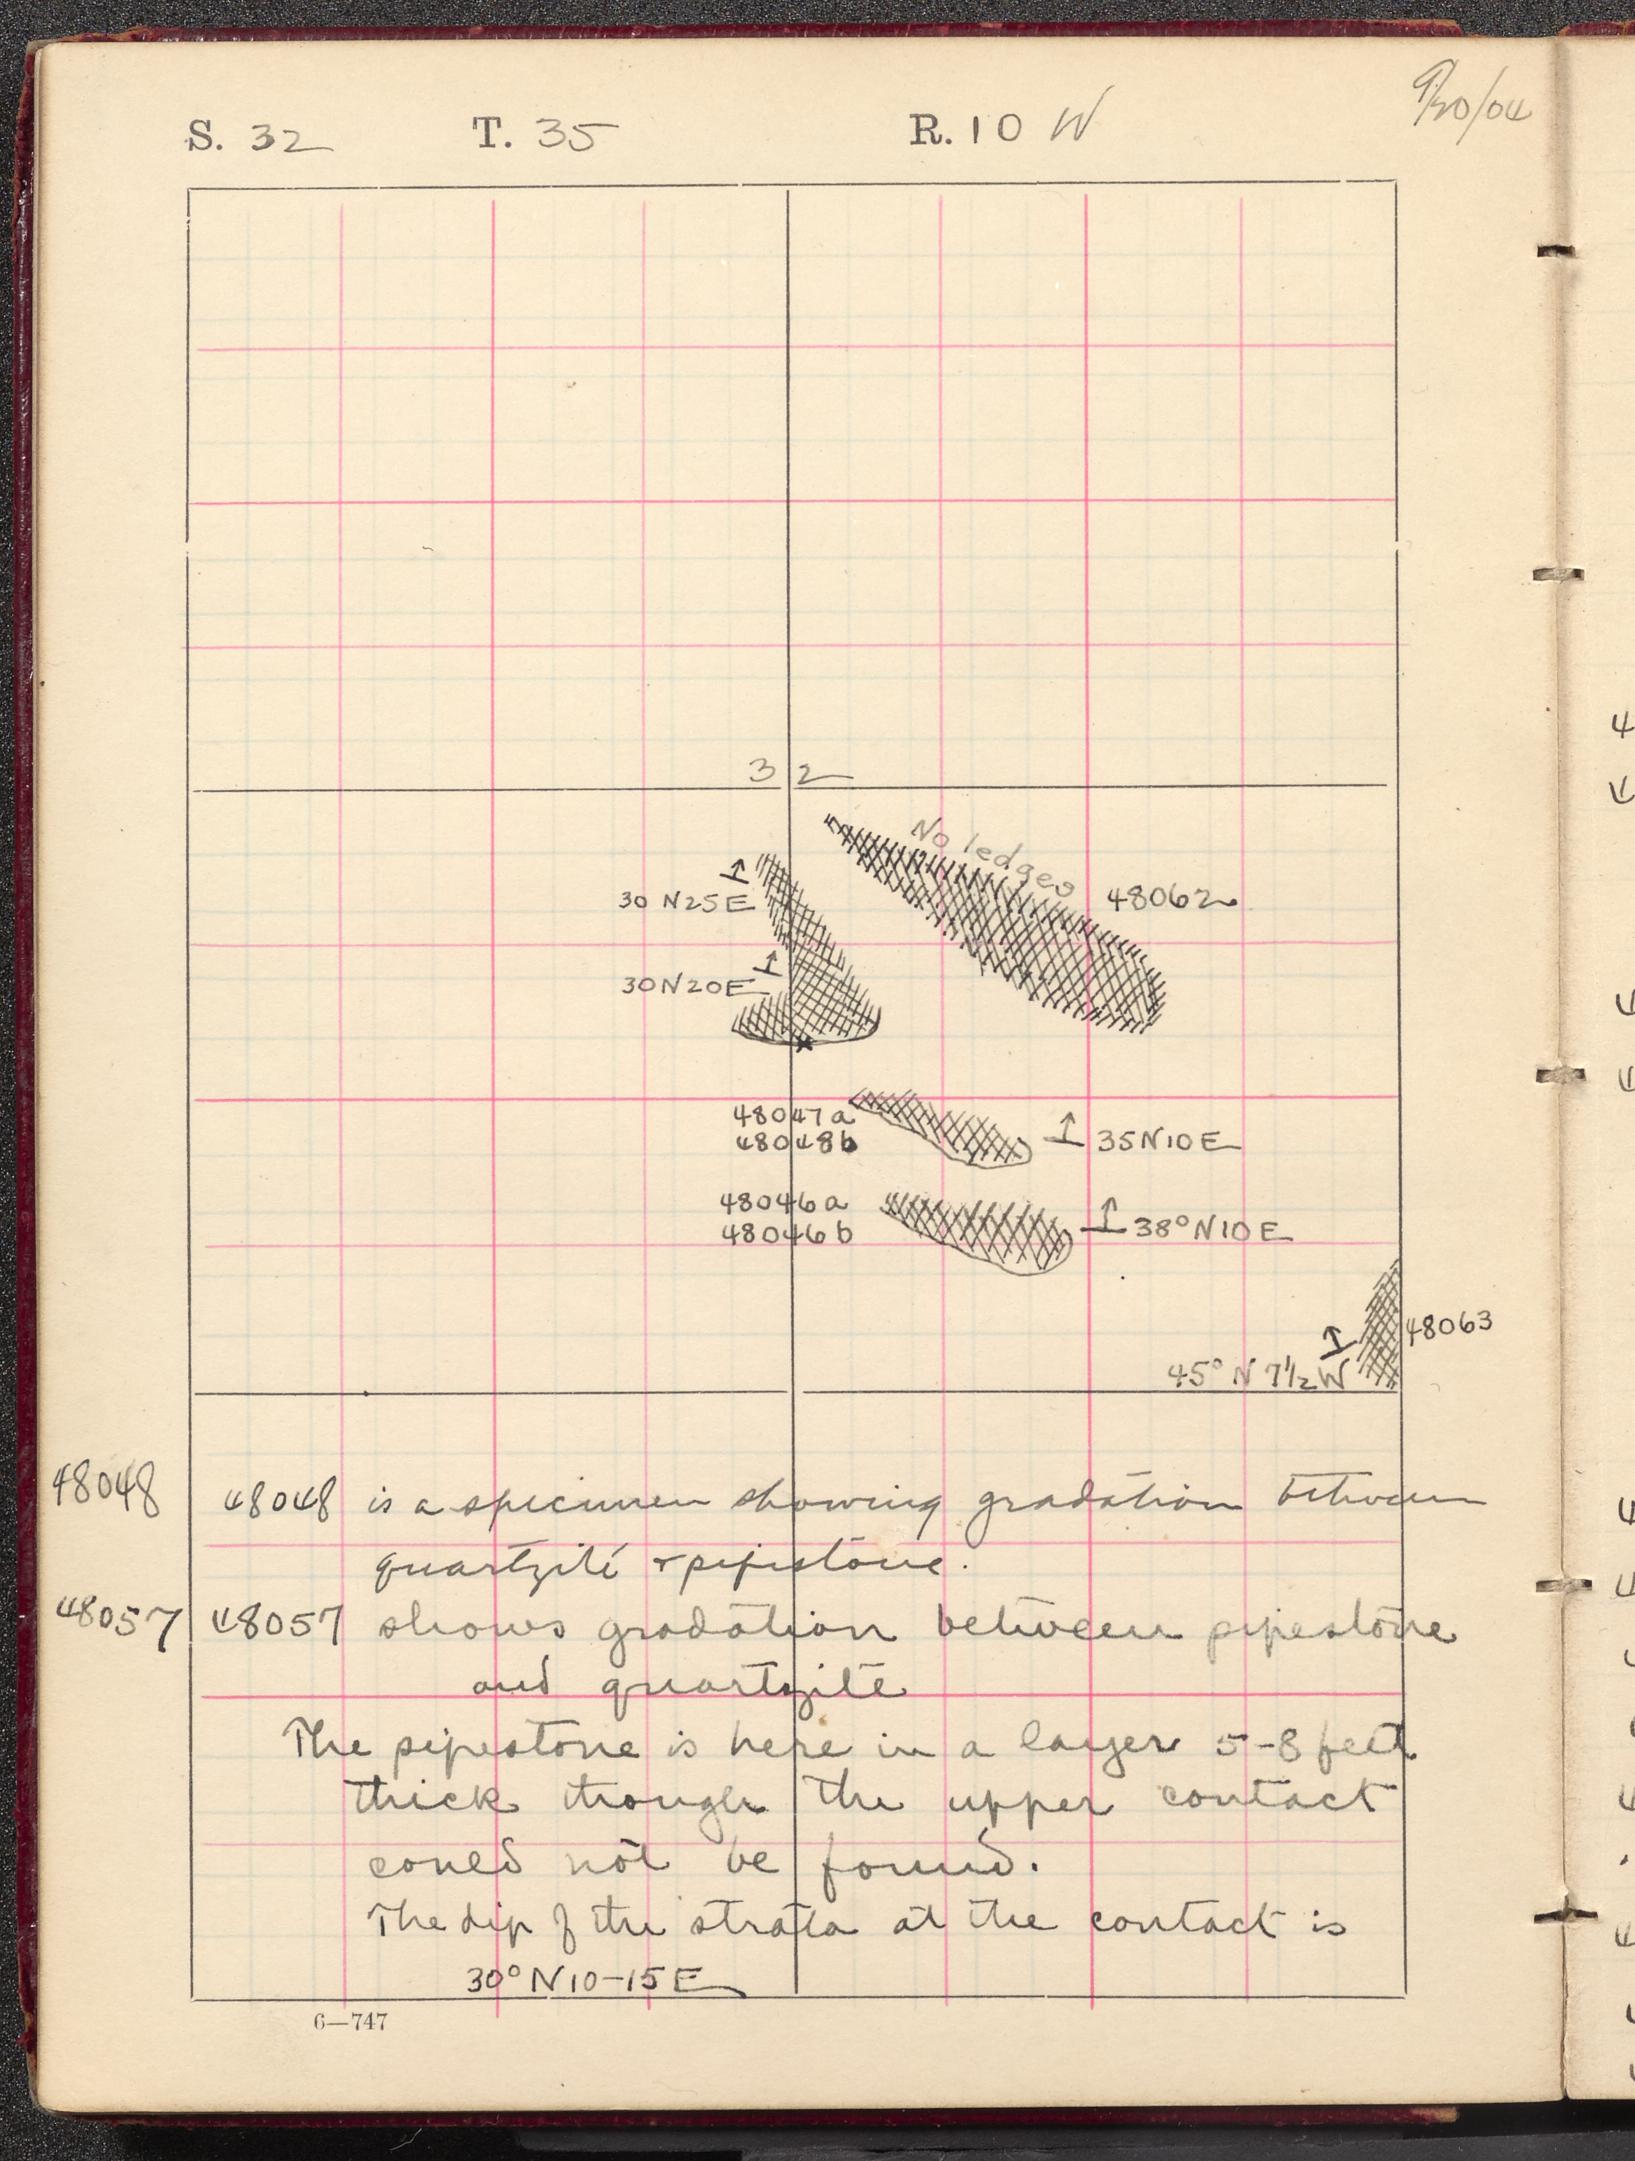 9/20/04
S. 32 T. 35 R. 10 W
32
No ledges
48062
30 N25E
30N20E
48047a
48048b
35N10E
48046a
48046b
38°N10E
48063
45° N 7½W
48048 48048 is a specimen showing gradation between
quartzite + pipestone.
48057 48057 shows gradation between pipestone
and quartzite
The pipestone is here in a layer 5-8 feet
thick though the upper contact
could not be found.
The dip of the strata at the contact is
30° N10-15E
6—747